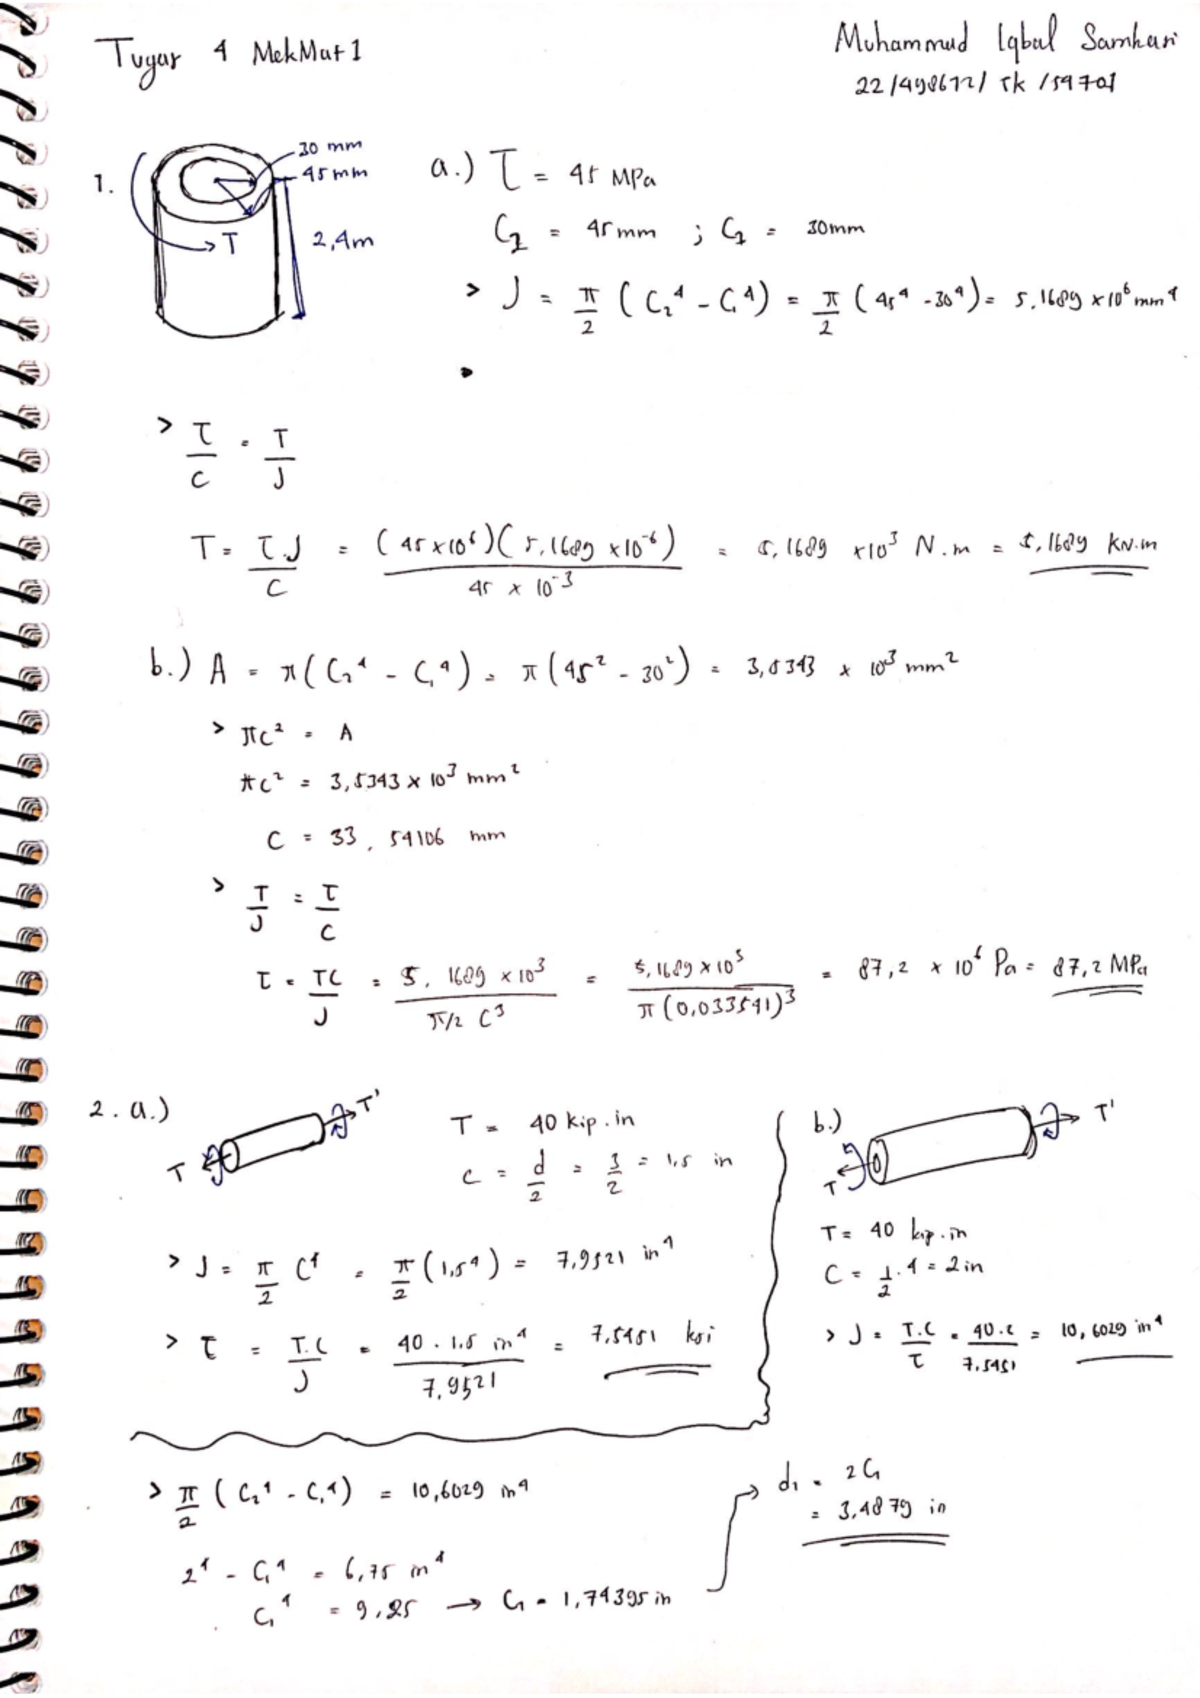 Tugas 4 MekMat 1
Muhammad Iqbal Samhari
22/498672/TK/54701
1.
30 mm
45 mm
2,4m
T
a.) τ = 45 MPa
C₂ = 45 mm ; C₁ = 30mm
> J = π/2 (C₂⁴ - C₁⁴) = π/2 (45⁴ - 30⁴) = 5,1689 x 10⁶ mm⁴
> τ/C = T/J
T = τ.J/C = (45 x 10⁶)(5,1689 x 10⁻⁶)/45 x 10⁻³ = 5,1689 x 10³ N.m = 5,1689 kN.m
b.) A = π(C₂⁴ - C₁⁴) = π(45² - 30²) = 3,5343 x 10³ mm²
> πC² = A
πC² = 3,5343 x 10³ mm²
C = 33,54106 mm
> T/J = τ/C
τ = TC/J = 5,1689 x 10³/π/2 C³ = 5,1689 x 10³/π(0,033541)³ = 87,2 x 10⁶ Pa = 87,2 MPa
2. a.)
T
T'
T = 40 kip.in
C = d/2 = 3/2 = 1,5 in
> J = π/2 C⁴ = π/2 (1,5⁴) = 7,9521 in⁴
> τ = T.C/J = 40 . 1,5 in⁴/7,9521 = 7,5451 ksi
b.)
T
T'
T = 40 kip.in
C = 1/2 . 4 = 2 in
> J = T.C/τ = 40.2/7,5451 = 10,6029 in⁴
> π/2 (C₂⁴ - C₁⁴) = 10,6029 in⁴
2⁴ - C₁⁴ = 6,75 in⁴
C₁⁴ = 9,25 → C₁ = 1,74395 in
d₁ = 2C₁
= 3,4879 in